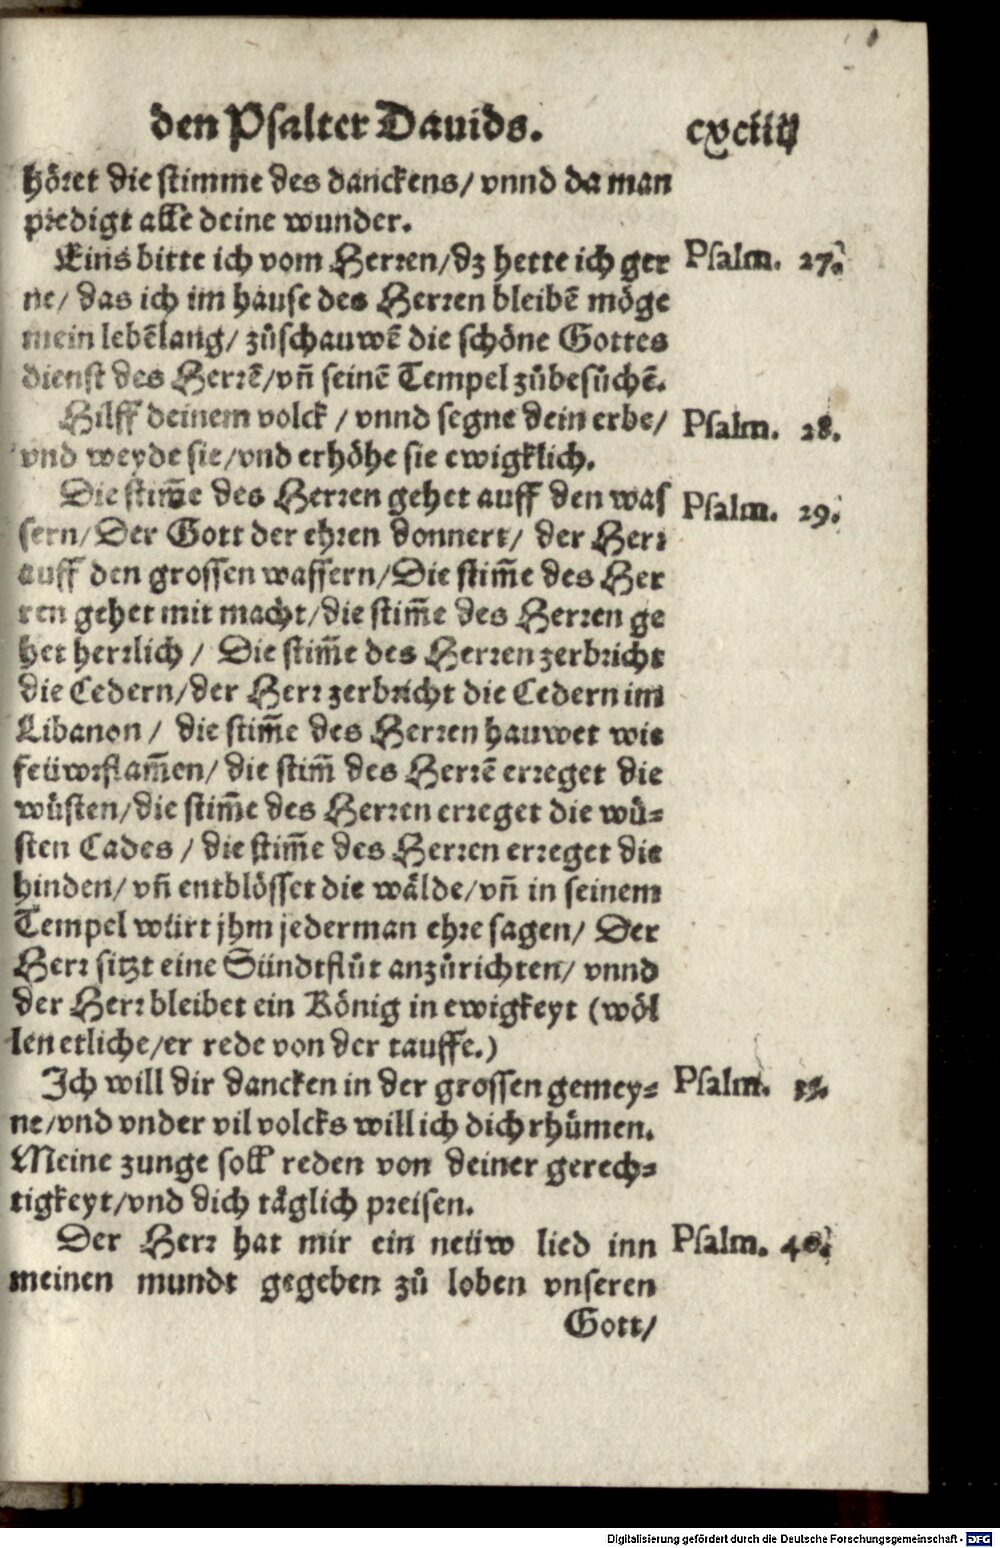 den Psalter Dauids. cxciiij
höret die stimme des danckens/ vnnd da man
predigt alle deine wunder.
Eins bitte ich vom Herren/dz hette ich ger Psalm. 27.
ne/ das ich im hause des Herren bleibē möge
mein lebēlang/ zůschauwē die schöne Gottes
dienst des Herrē/vñ seinē Tempel zůbesůchē.
Hilff deinem volck / vnnd segne dein erbe/ Psalm. 28.
vnd weyde sie/vnd erhöhe sie ewigklich.
Die stim̄e des Herren gehet auff den was Psalm. 29.
sern/Der Gott der ehren donnert/ der Herr
auff den grossen wassern/Die stim̄e des Her
ren gehet mit macht/die stim̄e des Herren ge
het herrlich / Die stim̄e des Herren zerbricht
die Cedern/der Herr zerbricht die Cedern im
Libanon / die stim̄e des Herren hauwet wie
feüwrflam̄en/ die stim̄ des Herrē erreget die
wůsten/die stim̄e des Herren erreget die wů-
sten Cades / die stim̄e des Herren erreget die
hinden/ vñ entblösset die wälde/vñ in seinem
Tempel würt jhm jederman ehre sagen/ Der
Herr sitzt eine Sündtflůt anzůrichten/ vnnd
der Herr bleibet ein König in ewigkeyt (wöl
len etliche/er rede von der tauffe.)
Ich will dir dancken in der grossen gemey- Psalm.
ne/vnd vnder vil volcks will ich dich rhümen.
Meine zunge soll reden von deiner gerech-
tigkeyt/vnd dich täglich preisen.
Der Herr hat mir ein neüw lied inn Psalm. 40.
meinen mundt gegeben zů loben vnseren
Gott/
Digitalisierung gefördert durch die Deutsche Forschungsgemeinschaft - DFG